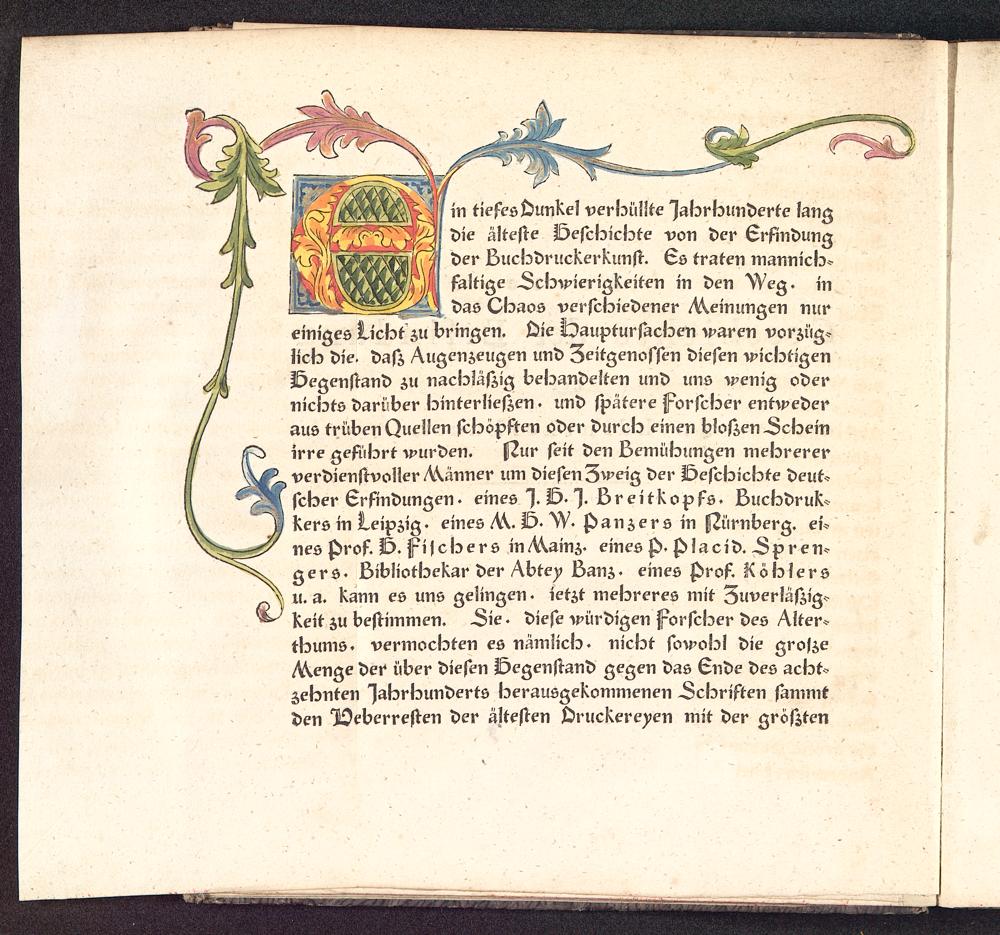 Ein tiefes Dunkel verhüllte Jahrhunderte lang
die älteste Geschichte von der Erfindung
der Buchdruckerkunst. Es traten mannich-
faltige Schwierigkeiten in den Weg. in
das Chaos verschiedener Meinungen nur
einiges Licht zu bringen. Die Hauptursachen waren vorzüg-
lich die. daß Augenzeugen und Zeitgenossen diesen wichtigen
Gegenstand zu nachläßig behandelten und uns wenig oder
nichts darüber hinterließen. und spätere Forscher entweder
aus trüben Quellen schöpften oder durch einen bloßen Schein
irre geführt wurden. Nur seit den Bemühungen mehrerer
verdienstvoller Männer um diesen Zweig der Geschichte deut-
scher Erfindungen. eines J. G. J. Breitkopfs. Buchdruk-
kers in Leipzig. eines M. G. W. Panzers in Nürnberg. ei-
nes Prof. G. Fischers in Mainz. eines P. Placid. Spren-
gers. Bibliothekar der Abtey Banz. eines Prof. Köhlers
u. a. kann es uns gelingen. ietzt mehreres mit Zuverläßig-
keit zu bestimmen. Sie. diese würdigen Forscher des Alter-
thums. vermochten es nämlich. nicht sowohl die große
Menge der über diesen Gegenstand gegen das Ende des acht-
zehnten Jahrhunderts herausgekommenen Schriften sammt
den Ueberresten der ältesten Druckereyen mit der größten